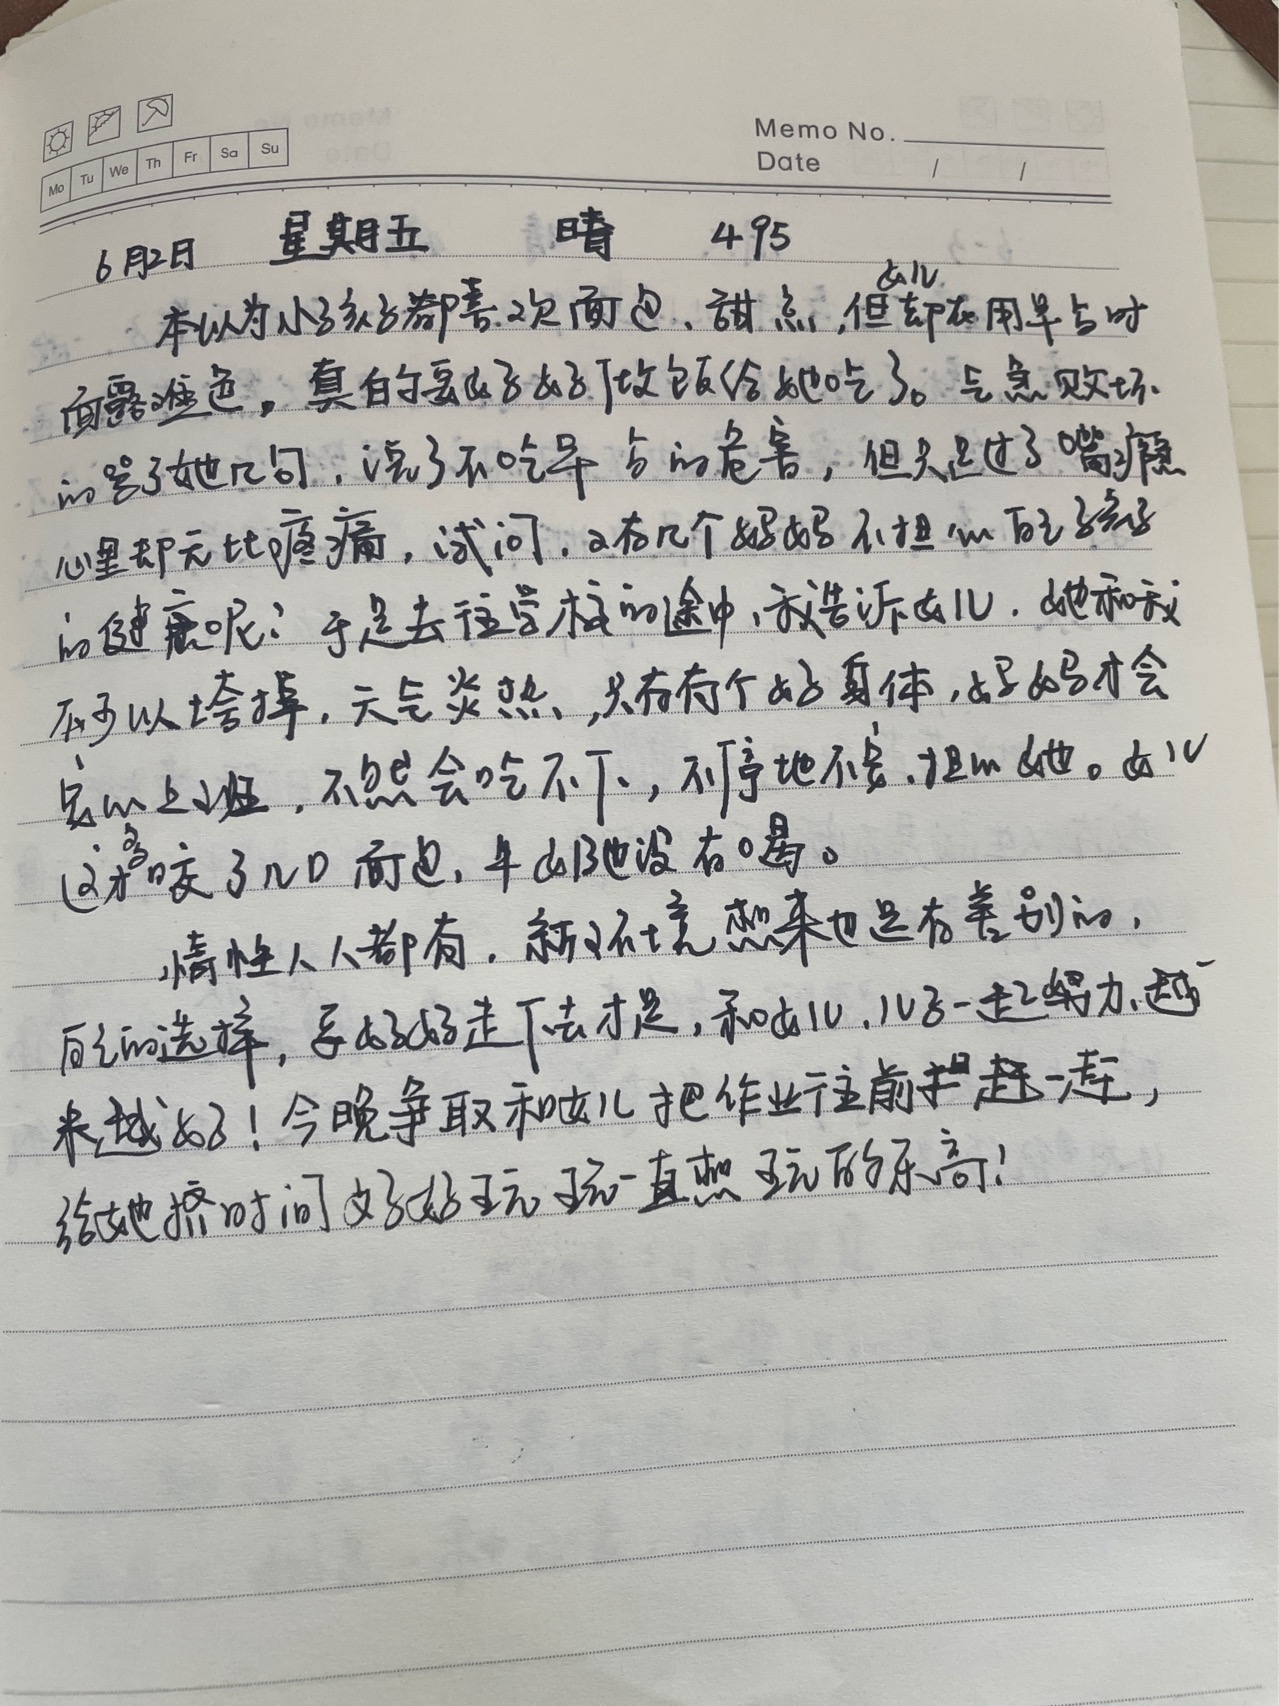 Memo No.
Date / /
Mo Tu We Th Fr Sa Su
6月2日 星期五 晴 495
本以为小孩子都喜欢面包、甜点,但女儿却在用早点时
面露难色,真的要好好做饭给她吃了。气急败坏
的骂了她几句,说了不吃早点的危害,但只是过了嘴瘾
心里却无比疼痛,试问,又有几个妈妈不担心自己孩子
的健康呢?于是去往学校的途中,我告诉女儿,她和我
不可以垮掉,天气炎热,只有有个好身体,妈妈才会
安心上班,不然会吃不下,不停地不安、担心她。女儿
这才多咬了几口面包,牛奶也没有喝。
惰性人人都有,新环境想来也是有差别的,
自己的选择,要好好走下去才是,和女儿、儿子一起努力,越
来越好!今晚争取和女儿把作业往前赶一赶,
给她挤时间好好玩玩一直想玩的乐高!